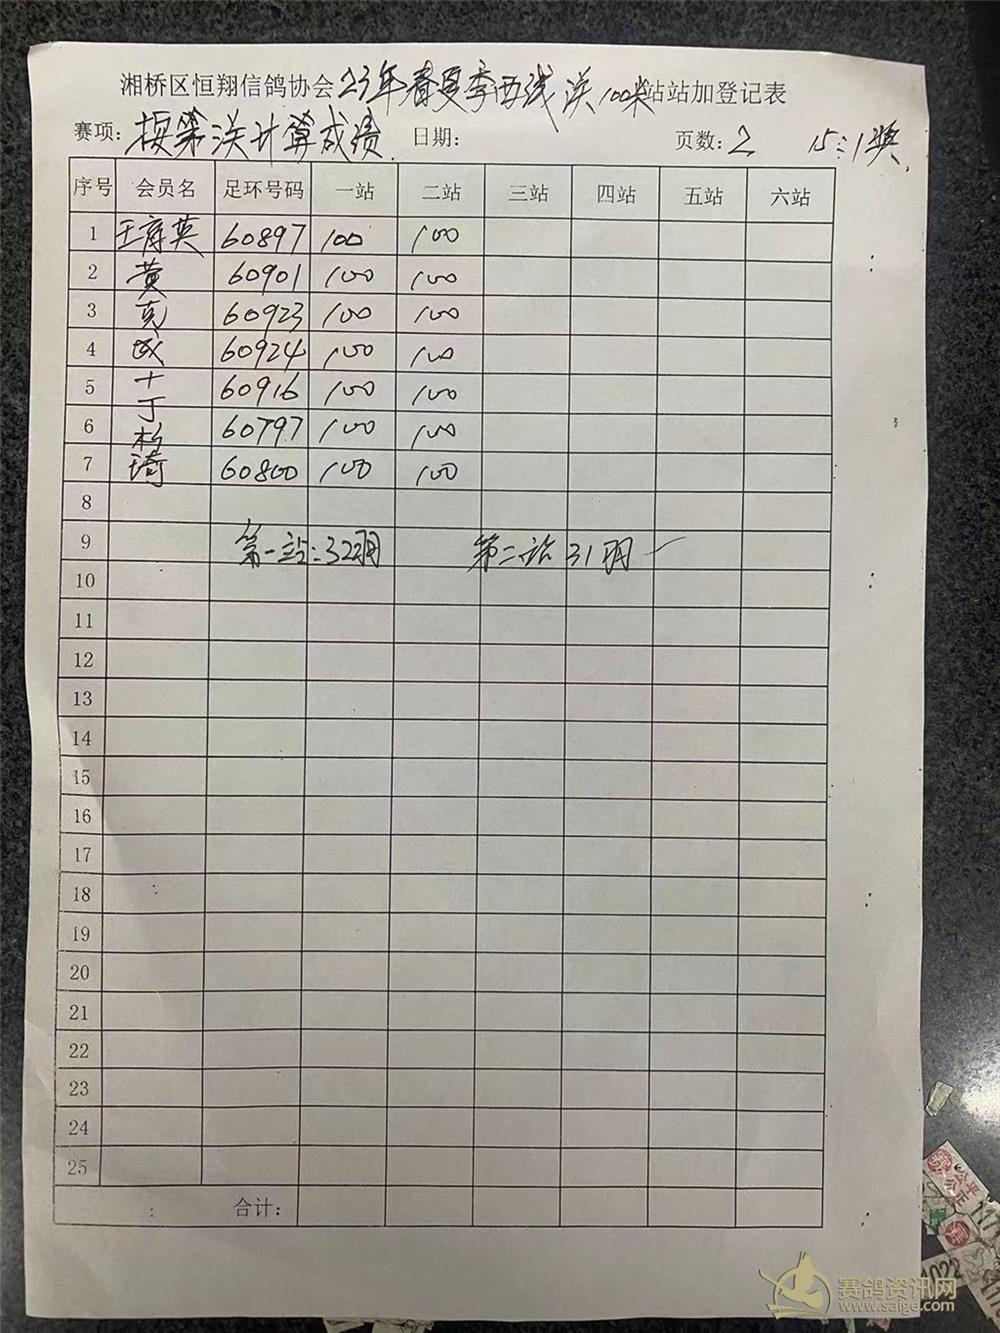 湘桥区恒翔信鸽协会23年春夏季西线关100米站站加登记表
赛项：按第关计算成绩 日期： 页数：2 15:1奖
序号 会员名 足环号码 一站 二站 三站 四站 五站 六站
1 英 60897 100 100
2 黄 60901 100 100
3 克 60923 100 100
4 60924 100 100
5 60916 100 100
6 60797 100 100
7 琦 60800 100 100
8
9 第一站:32羽 第二站31羽
10
11
12
13
14
15
16
17
18
19
20
21
22
23
24
25
合计：
赛鸽资讯网
www.saige.com